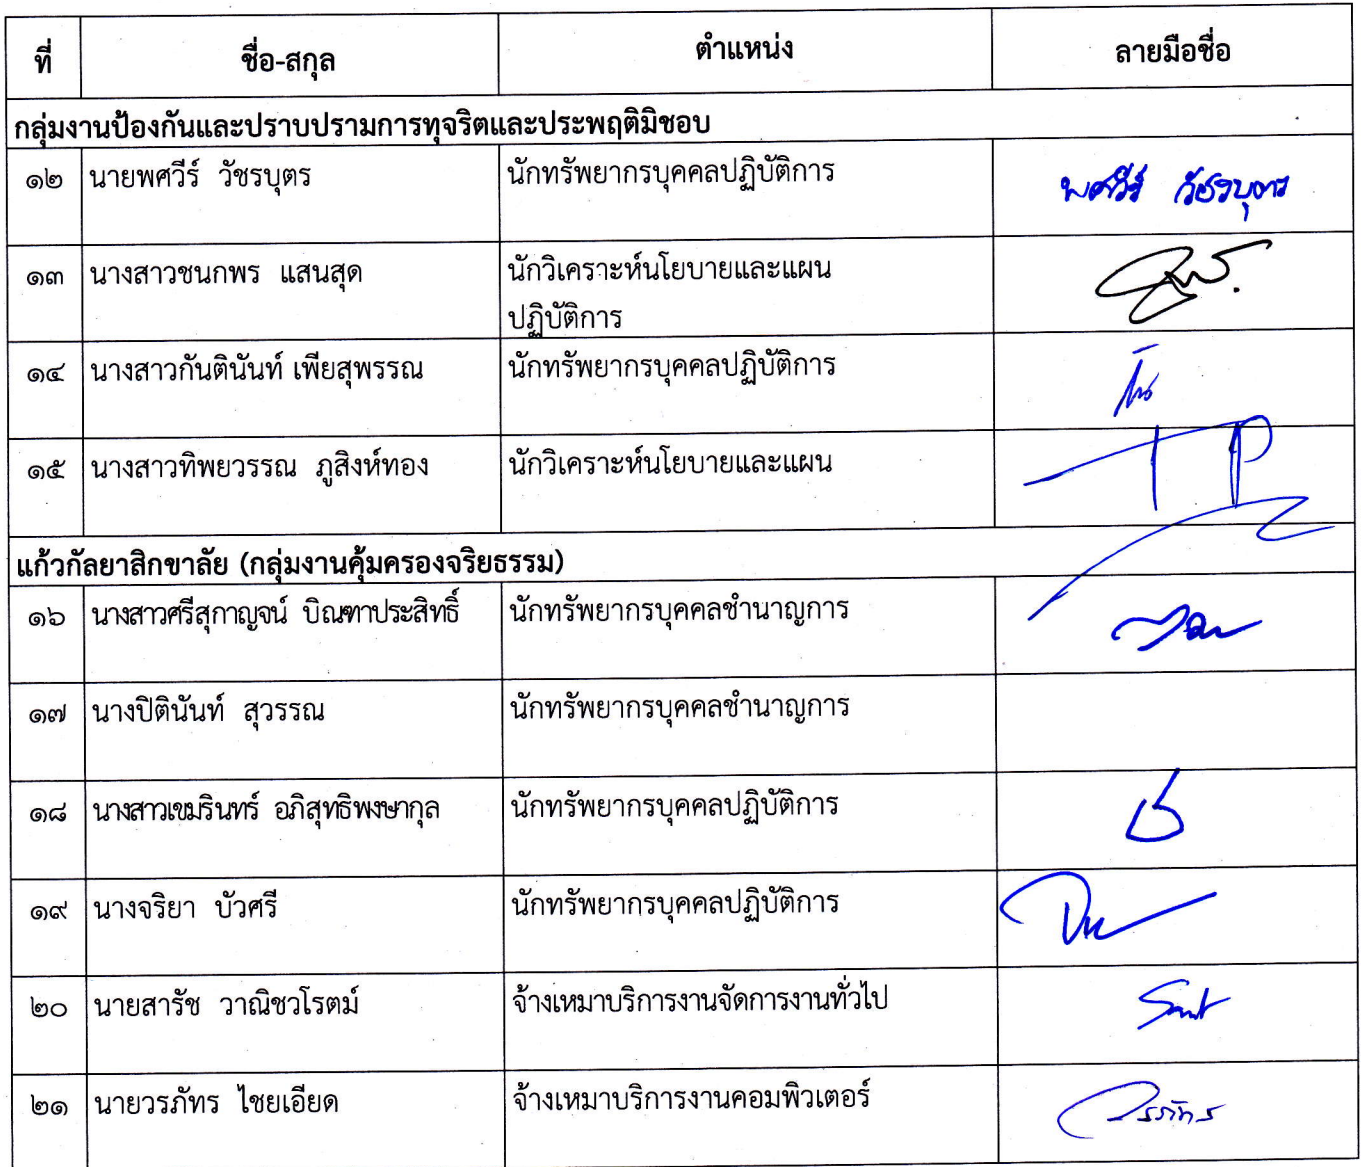 ที่ ชื่อ-สกุล ตำแหน่ง ลายมือชื่อ
กลุ่มงานป้องกันและปราบปรามการทุจริตและประพฤติมิชอบ
๑๒ นายพศวีร์ วัชรบุตร นักทรัพยากรบุคคลปฏิบัติการ พศวีร์ วัชรบุตร
๑๓ นางสาวชนกพร แสนสุด นักวิเคราะห์นโยบายและแผน
ปฏิบัติการ
๑๔ นางสาวกันตินันท์ เพียสุพรรณ นักทรัพยากรบุคคลปฏิบัติการ
๑๕ นางสาวทิพยวรรณ ภูสิงห์ทอง นักวิเคราะห์นโยบายและแผน
แก้วกัลยาสิกขาลัย (กลุ่มงานคุ้มครองจริยธรรม)
๑๖ นางสาวศรีสุกาญจน์ บิณฑาประสิทธิ์ นักทรัพยากรบุคคลชำนาญการ
๑๗ นางปิตินันท์ สุวรรณ นักทรัพยากรบุคคลชำนาญการ
๑๘ นางสาวเขมรินทร์ อภิสุทธิพงษากุล นักทรัพยากรบุคคลปฏิบัติการ
๑๙ นางจริยา บัวศรี นักทรัพยากรบุคคลปฏิบัติการ
๒๐ นายสารัช วาณิชวโรตม์ จ้างเหมาบริการงานจัดการงานทั่วไป
๒๑ นายวรภัทร ไชยเอียด จ้างเหมาบริการงานคอมพิวเตอร์ วรภัทร